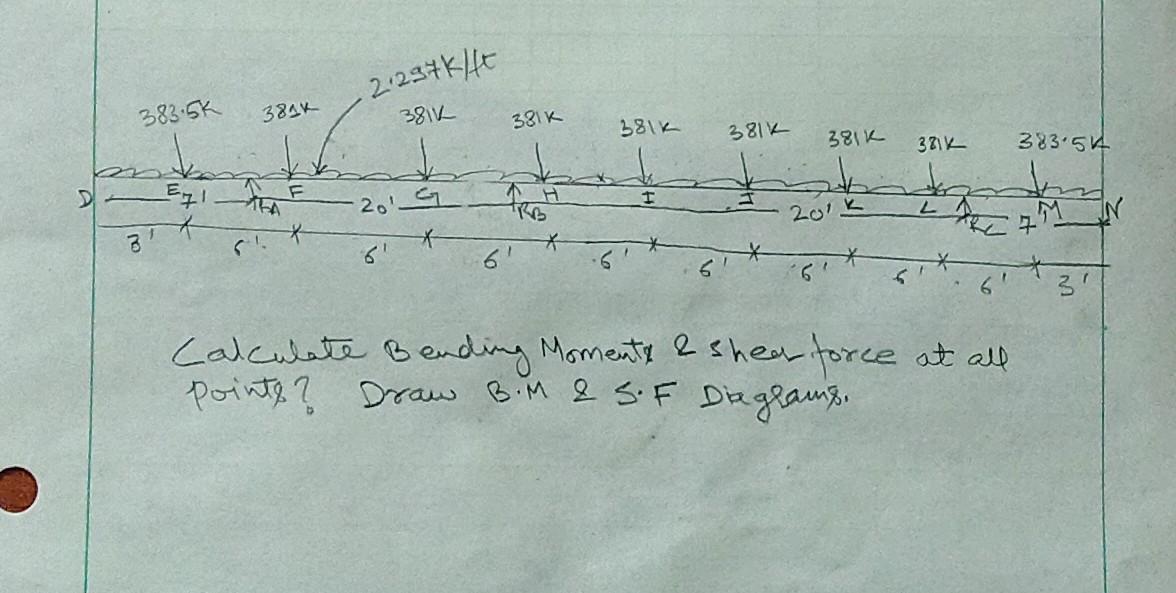 2.297K/ft
383.5K 381K 381K 381K 381K 381K 381K 381K 383.5K
D E F G H I J K L M N
7' RA 20' RB 20' RC 7'
3' 6' 6' 6' 6' 6' 6' 6' 6' 3'
Calculate Bending Moments & shear force at all
points? Draw B.M & S.F Diagrams.